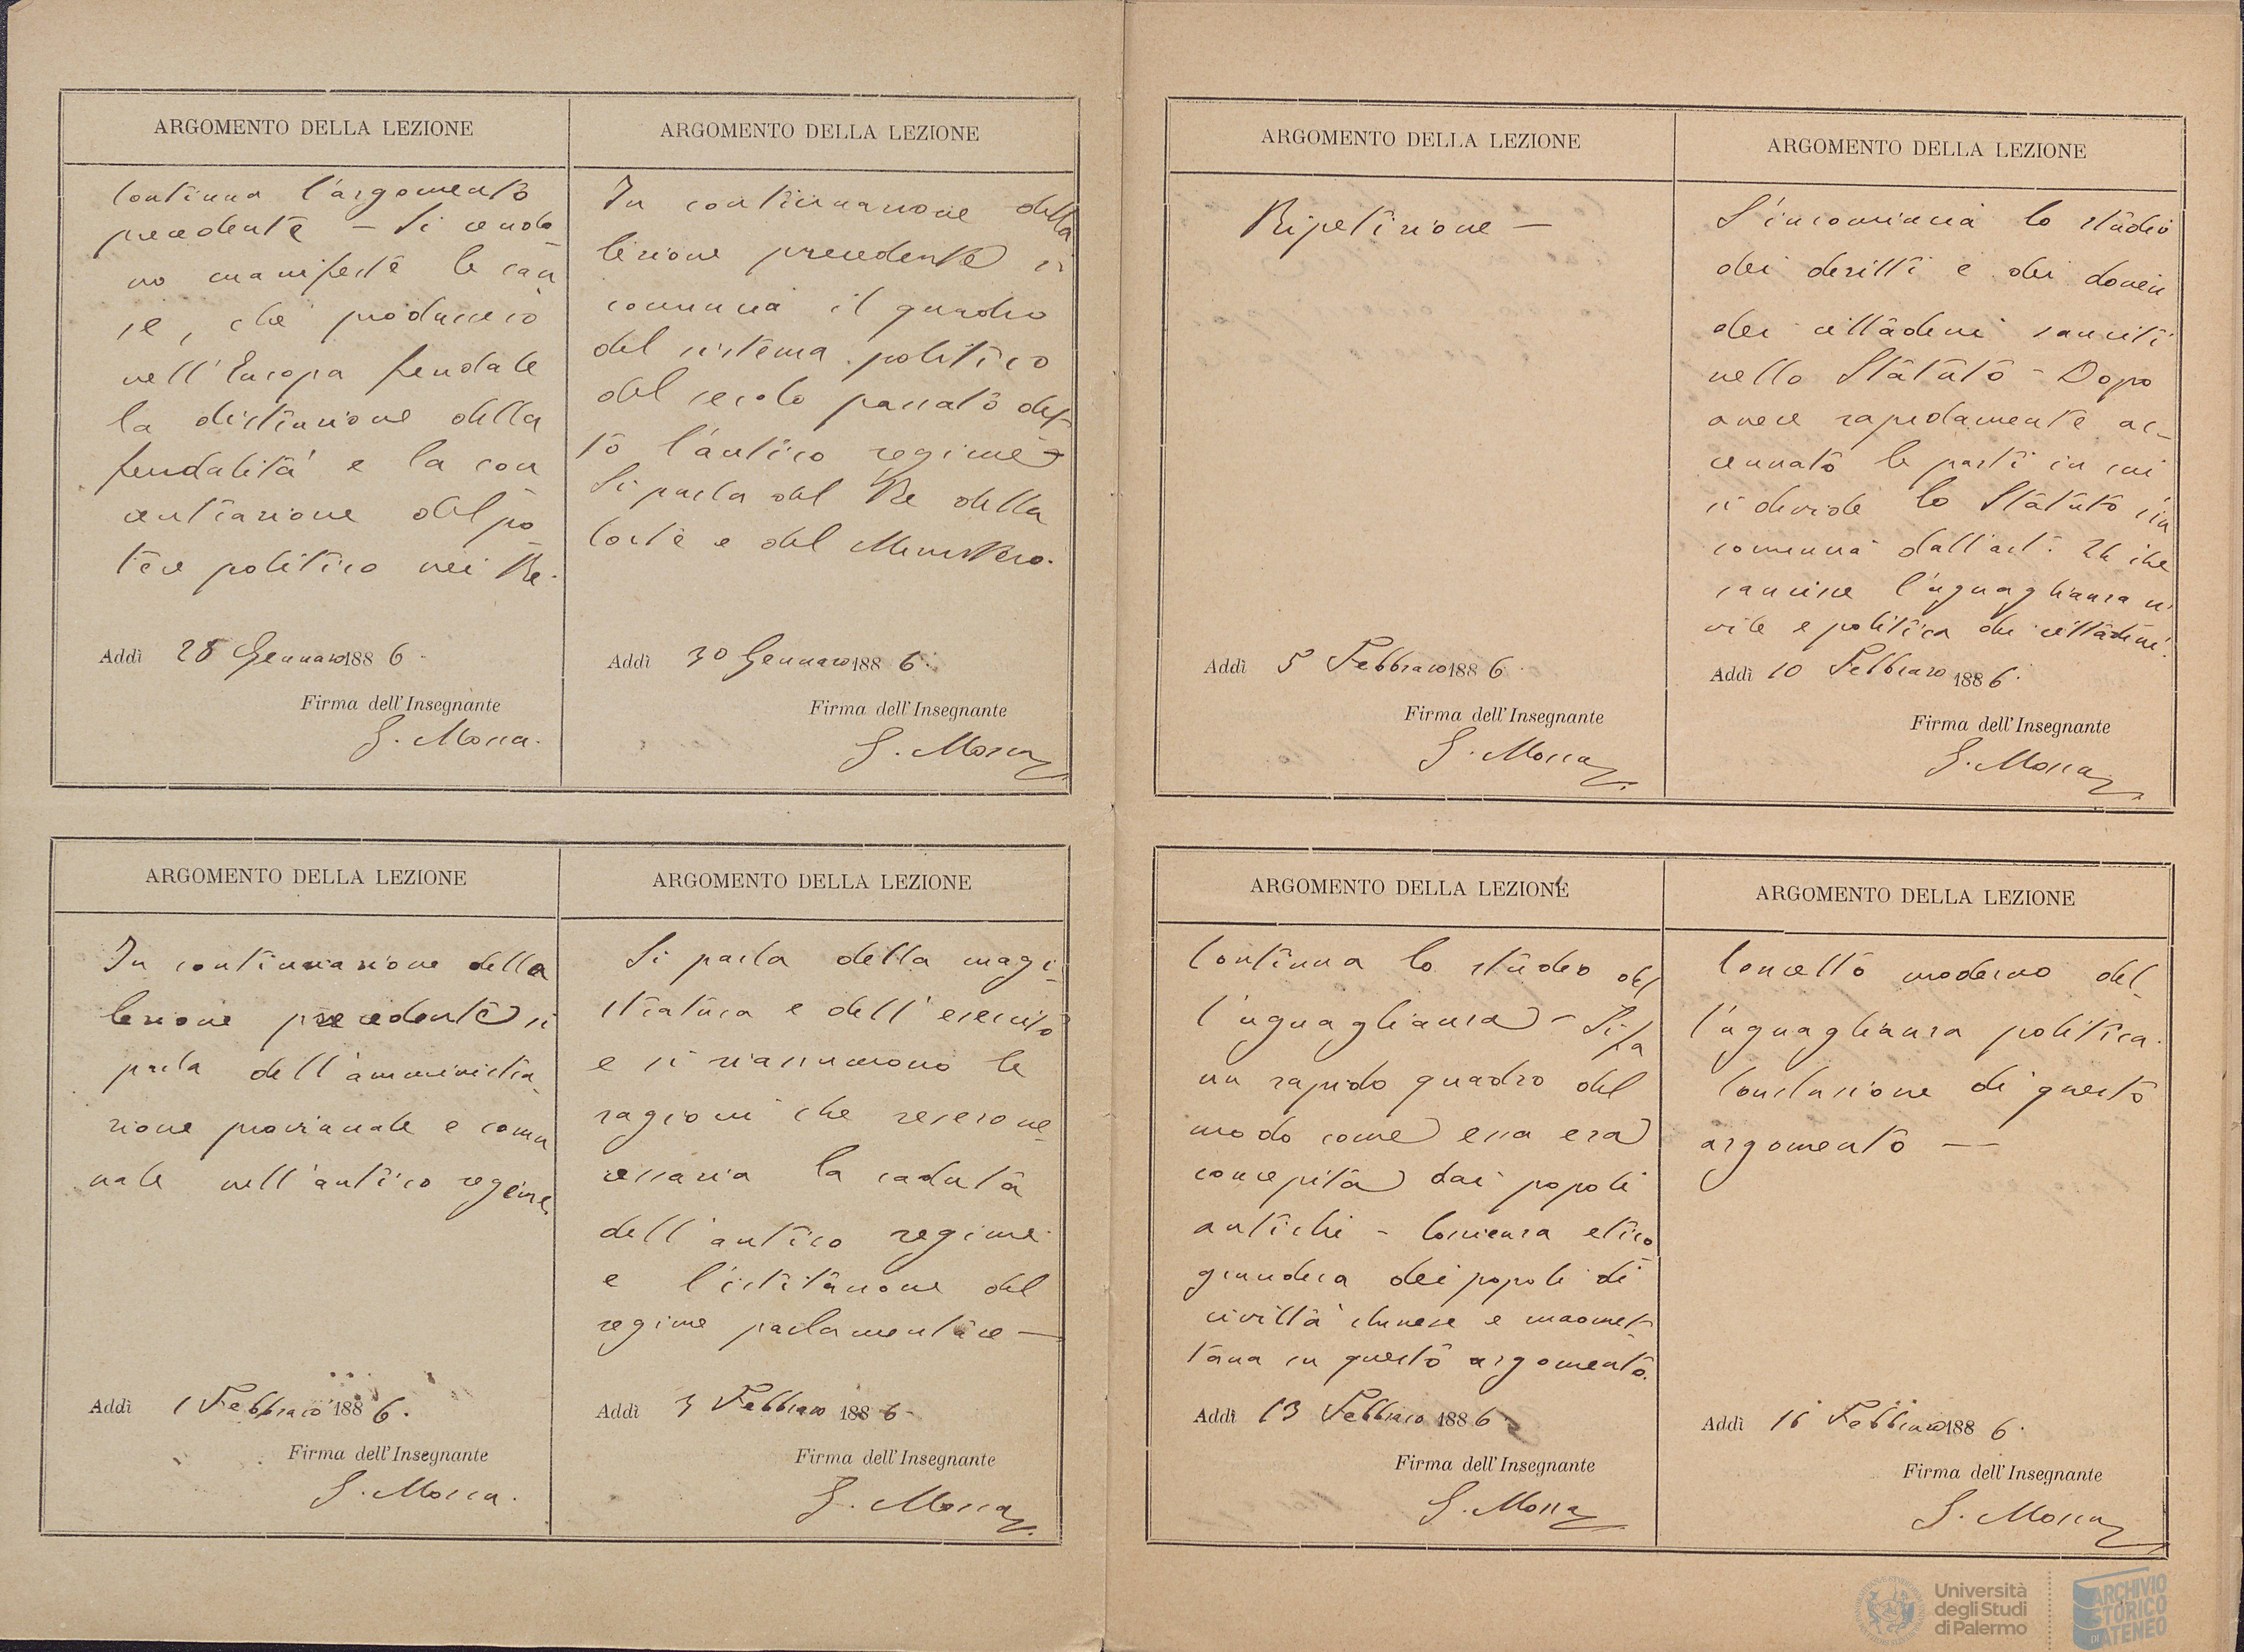 ARGOMENTO DELLA LEZIONE
Continua l'argomento
precedente – Si rendo
no manifeste le cau
se, che produssero
nell'Europa feudale
la distinzione della
feudalità e la con
centrazione del po
tere politico nei Re.
Addì 28 Gennaro 1886.
Firma dell'Insegnante
G. Mosca.
ARGOMENTO DELLA LEZIONE
In continuazione della
lezione precedente si
comincia il quadro
del sistema politico
del secolo passato det-
to l'antico regime –
Si parla del Re della
Corte e del Ministero.
Addì 30 Gennaro 1886.
Firma dell'Insegnante
G. Mosca
ARGOMENTO DELLA LEZIONE
In continuazione della
lezione precedente si
parla dell'amministra
zione provinciale e comu
nale nell'antico regime
Addì 1 Febbraio 1886.
Firma dell'Insegnante
G. Mosca.
ARGOMENTO DELLA LEZIONE
Si parla della magi-
stratura e dell'esercito
e si riassumono le
ragioni che resero ne-
cessaria la caduta
dell'antico regime
e l'istituzione del
regime parlamentare —
Addì 3 Febbraro 1886.
Firma dell'Insegnante
G. Mosca
ARGOMENTO DELLA LEZIONE
Ripetizione —
Addì 5 Febbraro 1886.
Firma dell'Insegnante
G. Mosca
ARGOMENTO DELLA LEZIONE
S'incomincia lo studio
dei diritti e dei doveri
dei cittadini sanciti
nello Statuto – Dopo
avere rapidamente ac-
cennato le parti in cui
si divide lo Statuto s'in
comincia dall'art. 24 che
sancisce l'uguaglianza ci
vile e politica dei cittadini.
Addì 10 Febbraro 1886.
Firma dell'Insegnante
G. Mosca
ARGOMENTO DELLA LEZIONE
Continua lo studio del
l'uguaglianza – Si fa
un rapido quadro del
modo come essa era
concepita dai popoli
antichi – Coscienza etico
giuridica dei popoli di
civiltà chinese e maomet-
tana in questo argomento.
Addì 13 Febbraro 1886
Firma dell'Insegnante
G. Mosca
ARGOMENTO DELLA LEZIONE
Concetto moderno del-
l'uguaglianza politica.
Conclusione di questo
argomento —
Addì Febbraro 1886.
Firma dell'Insegnante
G. Mosca
Università
degli Studi
di Palermo
ARCHIVIO
STORICO
DI ATENEO